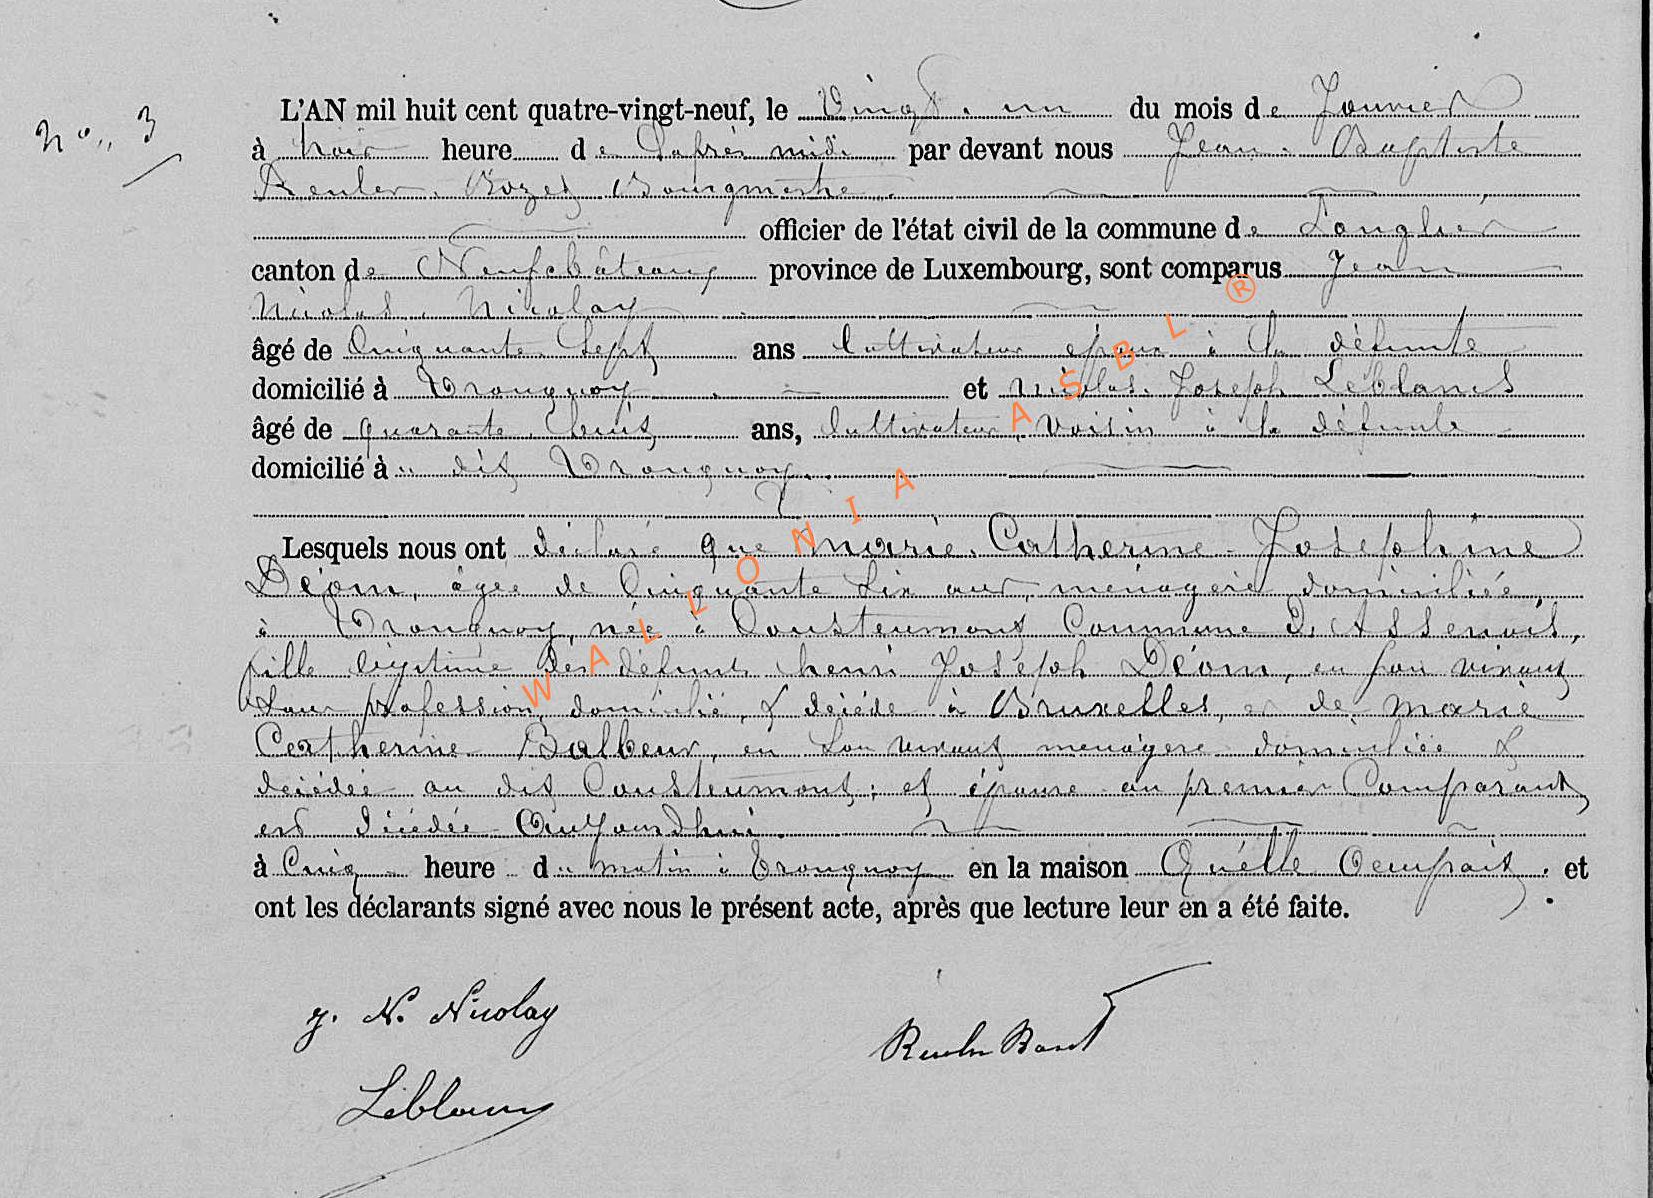 N° 3
L'AN mil huit cent quatre-vingt-neuf, le Vingt-un du mois de Janvier
à trois heure de l'après midi par devant nous Jean-Baptiste
Reuler Bourgmestre
officier de l'état civil de la commune de Longlier
canton de Neufchâteau, province de Luxembourg, sont comparus Jean
Nicolas Nicolay
âgé de Cinquante Sept ans Cultivateur époux à la défunte
domicilié à Tronquoy et Nicolas Joseph Leblanc
âgé de quarante huit ans, Cultivateur Voisin à la défunte
domicilié à u dit Tronquoy.
Lesquels nous ont déclaré que Marie Catherine Josephine
Déom, âgée de Cinquante Six ans, ménagère, domiciliée,
à Tronquoy, née à Cousteumont Commune d'Assenois,
fille légitime des défunts henri Joseph Déom, en son vivant
sans profession, domicilié, & décédé à Bruxelles, et de Marie
Catherine Balbeur, en son vivant ménagère domiciliée &
décédée au dit Cousteumont; et épouse au premier Comparant
est décédée Aujourdhui.
à Cinq heure du matin à Tronquoy en la maison Qu'elle Occupait. et
ont les déclarants signé avec nous le présent acte, après que lecture leur en a été faite.
J. N. Nicolay
Leblanc
WALLONIA ASBL ®